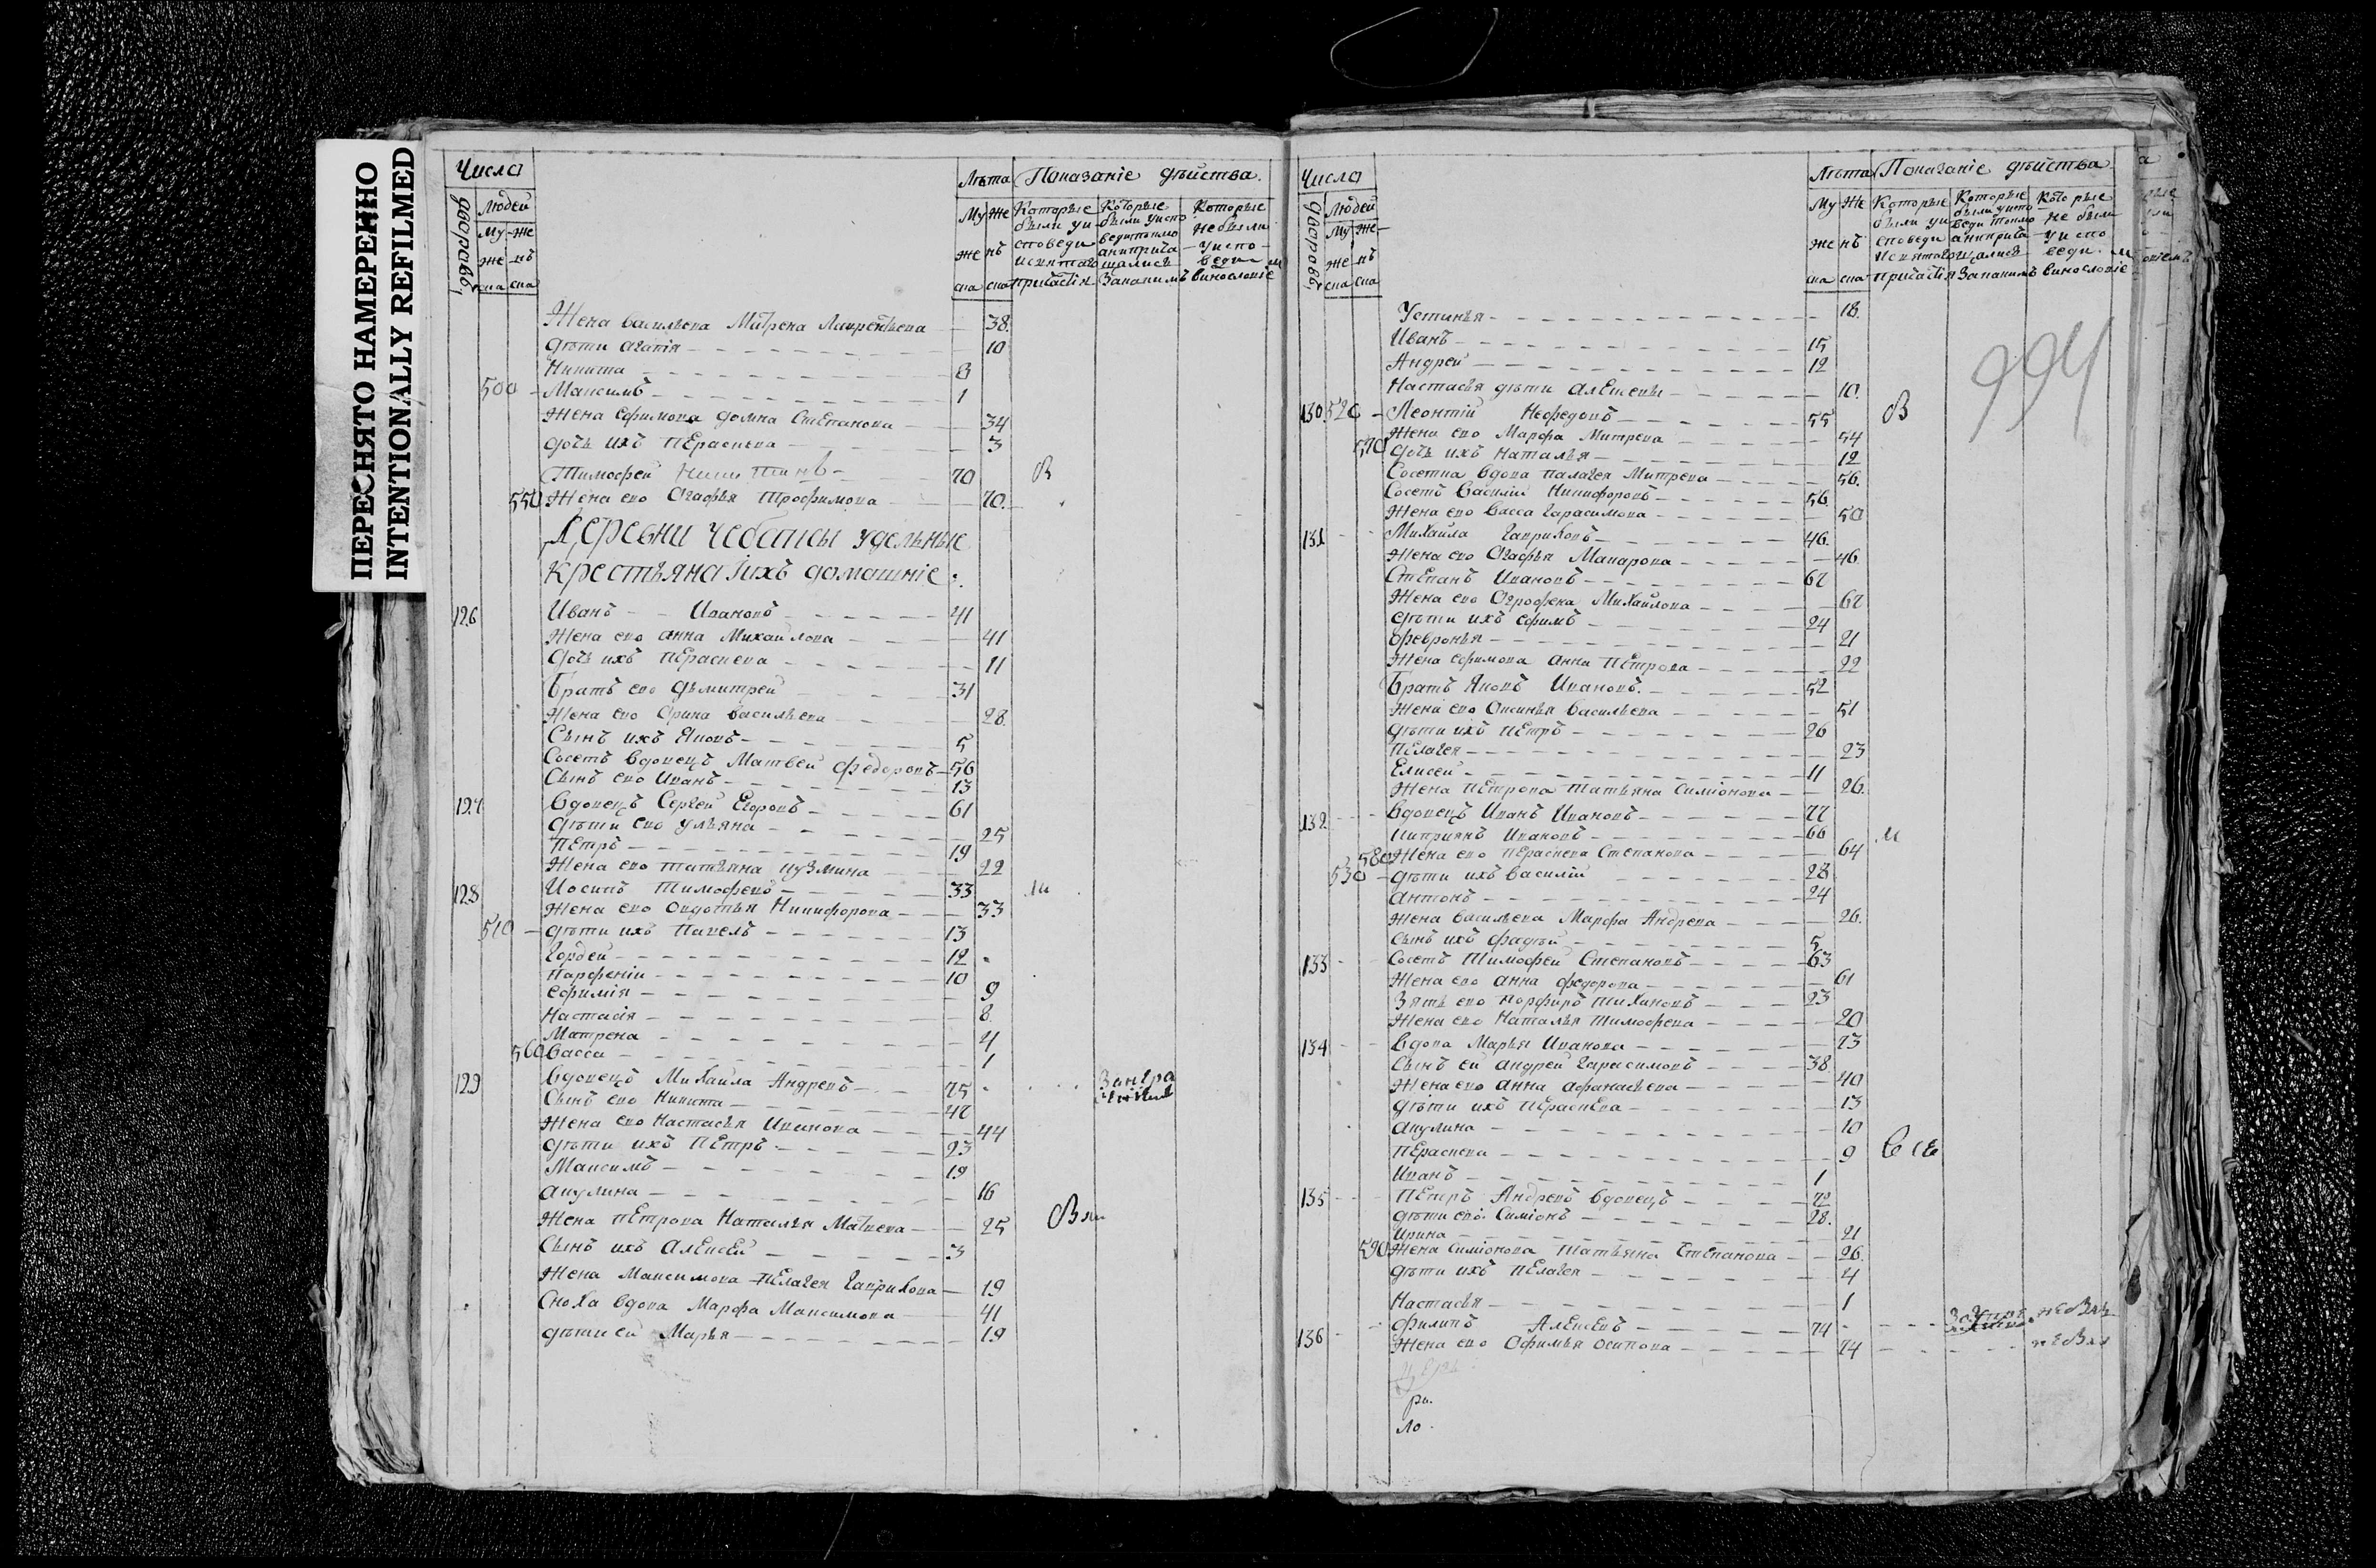 ПЕРЕСНЯТО НАМЕРЕННО
INTENTIONALLY REFILMED
Числа
дворовъ
Людей
Му же
же нъ
ска ска
Лѣта
Му Же
же нъ
ска ска
Показаніе дѣйства.
Которые были у исповеди и святаго причастія
Которые были у исповеди токмо а не причащались За какимъ
Которые не были у исповеди. винословіе
Жена васильева Матрена Лаврентьева 38.
дѣти агапія 10
Никита 8
500 Максимъ 1
Жена Ефимова домна Степанова 34
дочь ихъ Пераскева 3
Тимофей Никитинъ 70 В
550 Жена ево Агафья Трофимова 70.
Деревни чебаксы удельные
крестьяна іихъ домашніе:
126 Иванъ Ивановъ 41
Жена ево анна Михайлова 41
дочь ихъ Пераскева 11
Братъ ево дѣмитрей 31
Жена ево Орина васильева 28.
Сынъ ихъ Яковъ 5
Сосетъ вдовецъ Матвей федоровъ 56
Сынъ ево Иванъ 13
127 вдовецъ Сергей Егоровъ 61
дѣти ево ульяна 25
Петръ 19
Жена ево татьяна кузмина 22
128 Иосипъ Тимофевъ 33
Жена ево Овдотья Никифорова 33
510 дѣти ихъ Павелъ 13
Гордей 12
Парфеній 10
Ефимія 9
Настасія 8
Матрена 4
560 васса 1
129 вдовецъ Михаила Андревъ 75
Сынъ ево Никита 47
Жена ево Настасья Иванова 44
дѣти ихъ Петръ 23
Максимъ 19
акулина 16
Жена петрова Наталья Матвева 25
Сынъ ихъ алексей 3
Жена Максимова пелагея Гаврилова 19
Сноха вдова Марфа Максимова 41
дѣти ей Марья 19
Числа
дворовъ
Людей
Му же
же нъ
ска ска
Лѣта
Му Же
же нъ
ска ска
Показаніе дѣйства.
Которые были у исповеди и святаго причастія
Которые были у исповеди токмо а не причащались За какимъ
Которые не были у исповеди. винословіе
994
Устинья 18.
Иванъ 15
Андрей 12
Настасья дѣти алексевы 10.
130 520 Леонтій Нефедовъ 55 В
Жена ево Марфа Митрева 54
570 дочь ихъ Наталья 12
Сосетка вдова палагея Митрева 56.
Сосетъ Василій Никифоровъ 56.
Жена ево васса Гарасимова 50
131 Михайла Гавриловъ 46.
Жена ево Агафья Макарова 46.
Степанъ Ивановъ 67
Жена ево Огрофена Михайлова 67
дѣти ихъ Ефимъ 24
февронья 21
Жена ефимова анна Петрова 22
Братъ Яковъ Ивановъ. 52
Жена ево Оксинья васильева 51
дѣти ихъ Петръ 26
Пелагея 23
Елисей 11
Жена Петрова Татьяна Симіонова 26.
132 вдовецъ Иванъ Ивановъ 77
Киприянъ Ивановъ 66
580 Жена ево Пераскева Степанова 64
530 дѣти ихъ василій 28
антонъ 24
Жена васильева Марфа Андрева 26.
сынъ ихъ фадѣй 5
133 Сосетъ Тимофей Степановъ 63
Жена ево анна федорова 61
Зять ево Порфиръ Тихановъ 23
Жена ево Наталья Тимофева 20
134 вдова Марья Иванова 73
Сынъ ей андрей Гарасимовъ 38.
Жена ево анна афанасьева 40
дѣти ихъ Пераскева 13
акулина 10
Пераскева 9 все
Иванъ 1
135 Петръ Андревъ вдовецъ 72
дѣти ево Симіонъ 28.
Ирина 21
590 Жена Симіонова Татьяна Степанова 26.
дѣти ихъ Пелагея 4
Настасья 1
136 филипъ Алексевъ 74
Жена ево Офимья осипова 74
ра.
ло.